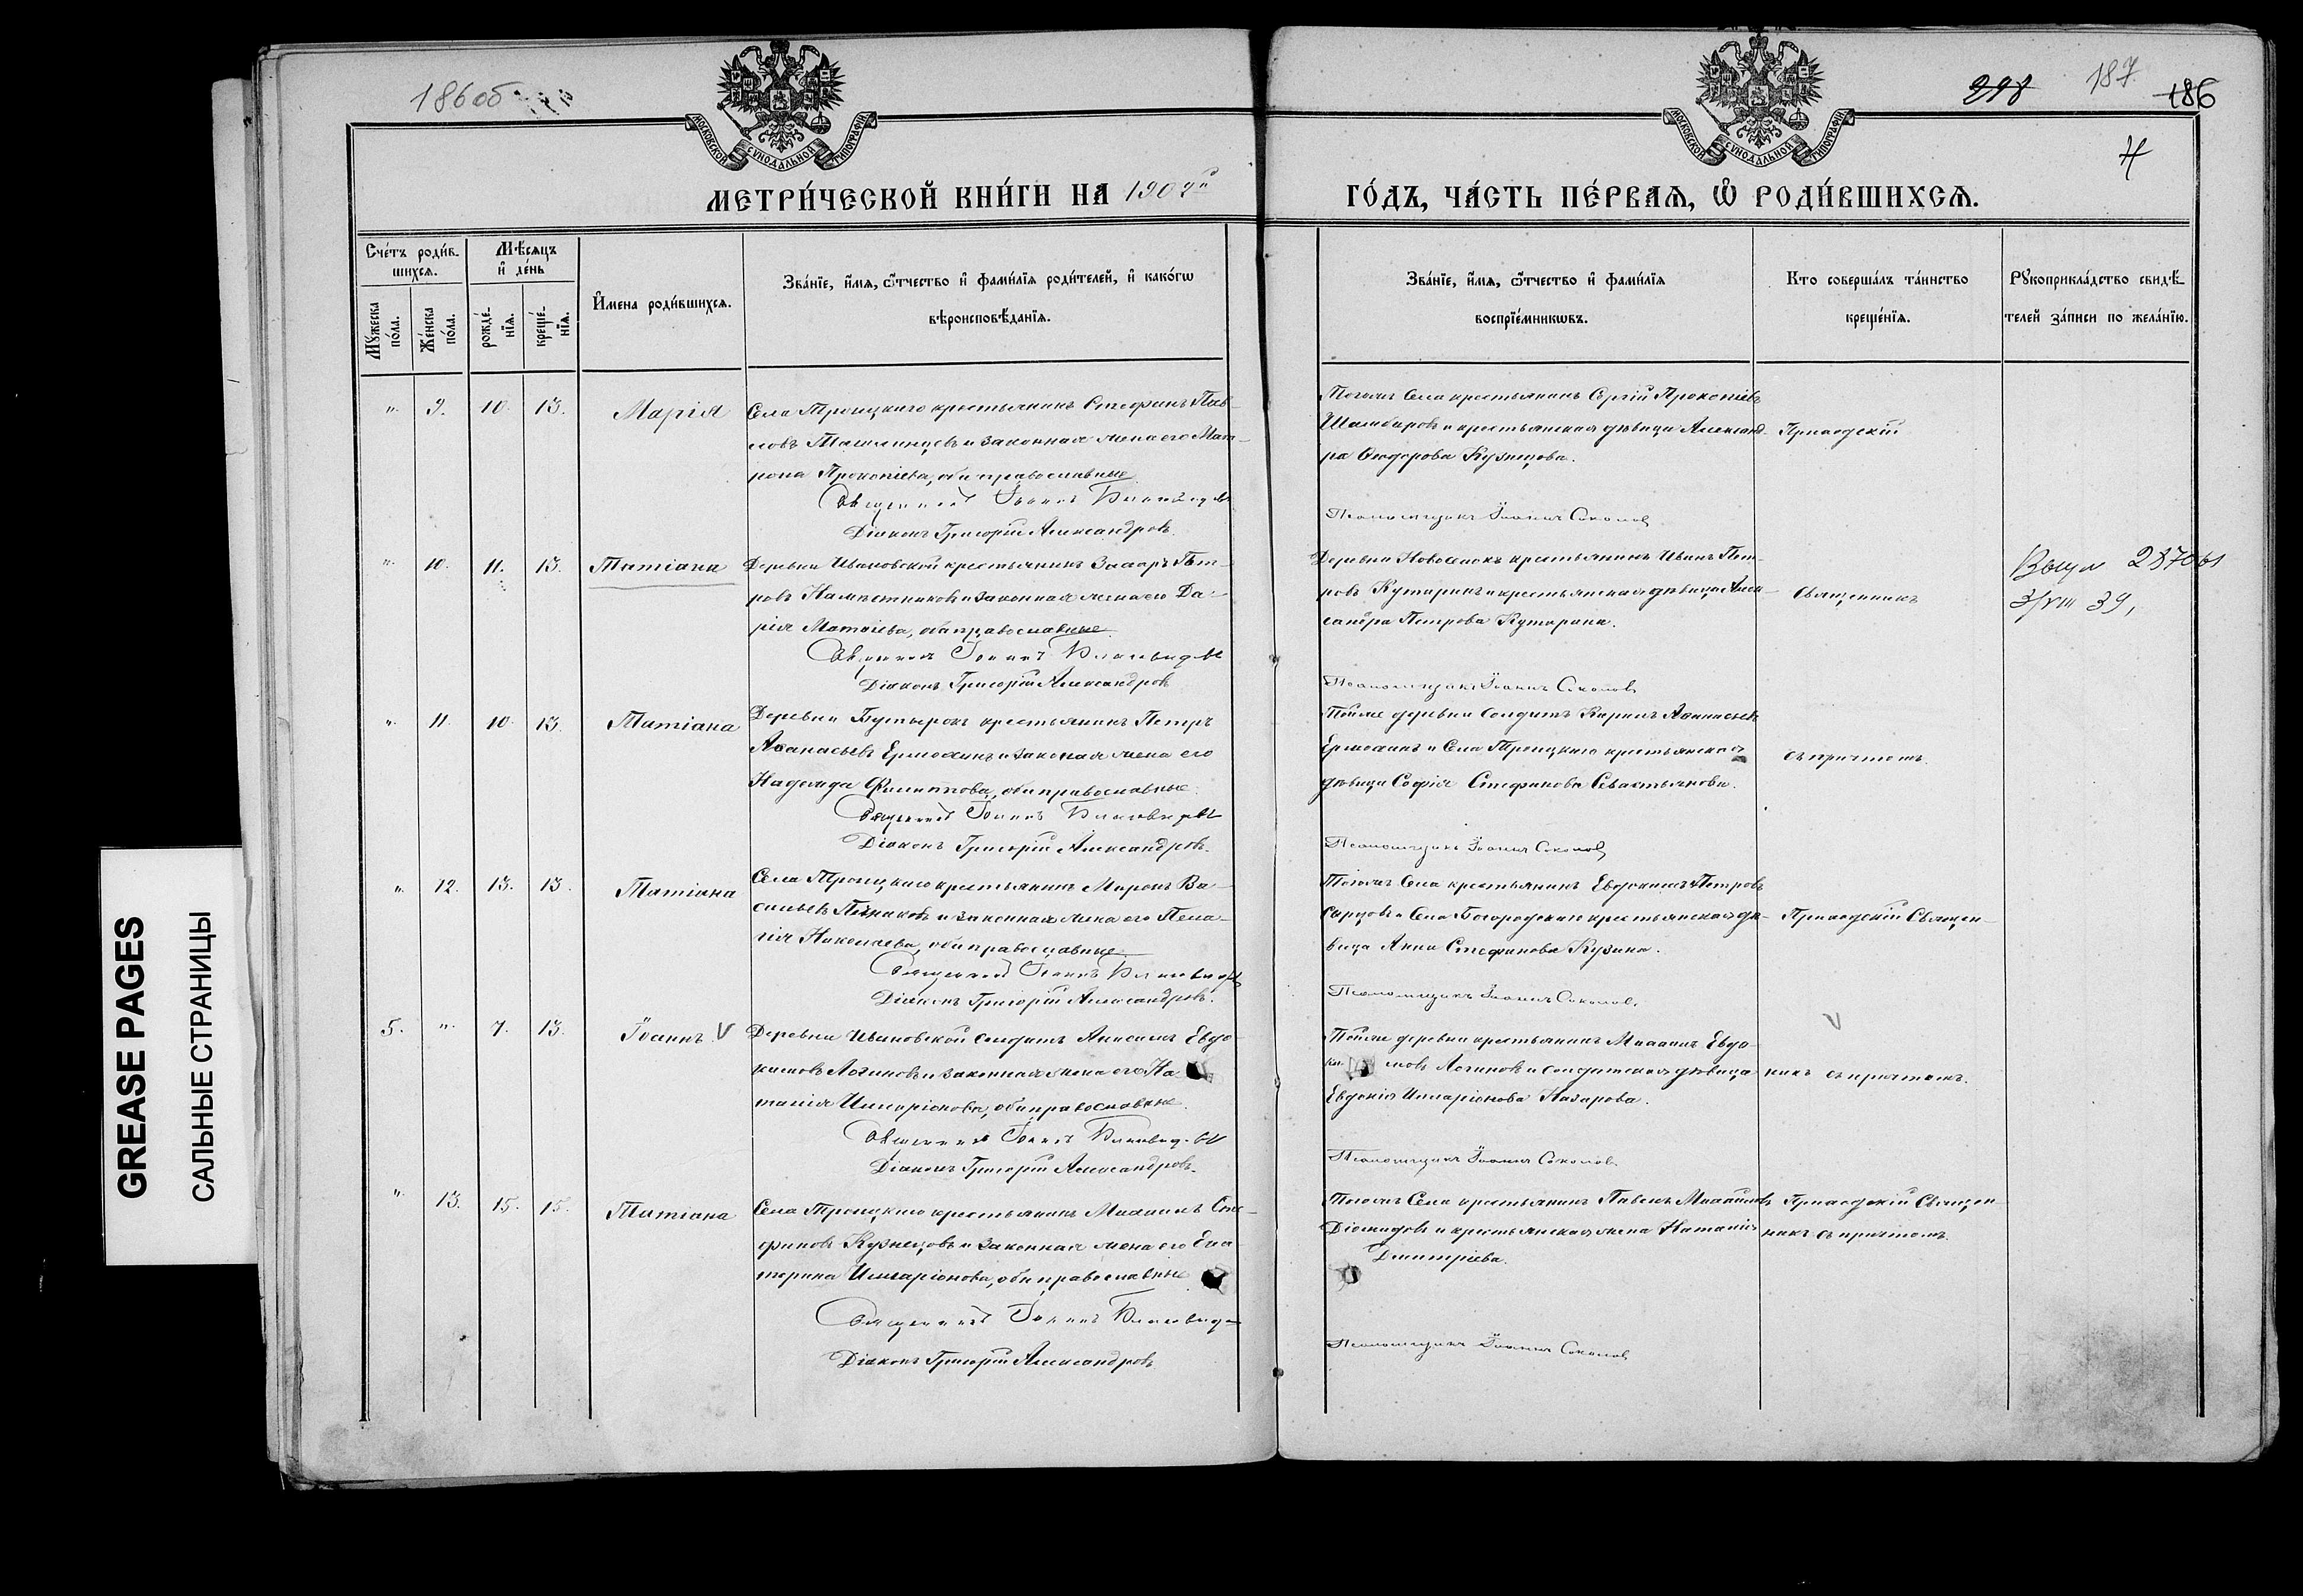 186об
МОСКОВСКОЙ СУНОДАЛЬНОЙ ТИПОГРАФІИ
МОСКОВСКОЙ СУНОДАЛЬНОЙ ТИПОГРАФІИ
298 187 186
МЕТРИ́ЧЕСКОЙ КНИ́ГИ НА 190
ГО́ДЪ, ЧА́СТЬ ПЕ́РВАѦ, Ѡ҆ РОДИ́ВШИХСѦ.
Сче́тъ роди́в-
шихсѧ.
Мꙋ́жеска по́ла.
Же́нска по́ла.
Мѣ́сѧцъ
и҆ де́нь
рожде́-нїѧ.
креще́-нїѧ.
И҆мена роди́вшихсѧ.
Зва́нїе, и҆́мѧ, ѻ҆́тчество и҆ фами́лїѧ роди́телей, и҆ како́гѡ
вѣроисповѣ́данїѧ.
Зва́нїе, и҆́мѧ, ѻ҆́тчество и҆ фами́лїѧ
воспрїе́мникѡвъ.
Кто соверша́лъ та́инство
креще́нїѧ.
Рꙋкоприкла́дство свидѣ́-
телей за́писи по жела́нїю.
" 9. 10. 13. Марія
Села Троицкаго крестьянинъ Стефанъ Пав-
ловъ и законная жена его Мат-
рона Прокопіева, оба православные.
Священникъ Іоаннъ
Діаконъ Григорій Александровъ.
Тогожъ Села крестьянинъ Сергій Прокопіевъ
и крестьянская дѣвица Александ-
ра Ѳедорова Кузнецова.
Псаломщикъ Іоаннъ Соколовъ
Приходскій
" 10. 11. 13. Татіана
Деревни Ивановской крестьянинъ Захаръ Пет-
ровъ Намѣстниковъ и законная жена его Да-
рія Матѳіева, оба православные.
Священникъ Іоаннъ
Діаконъ Григорій Александровъ
Деревни Новоселокъ крестьянинъ Иванъ Пет-
ровъ Кутаринъ и крестьянская дѣвица Алек-
сандра Петрова Кутарина.
Псаломщикъ Іоаннъ Соколовъ
Священникъ
3/VIII 39,
" 11. 10. 13. Татіана
Деревни Бутырокъ крестьянинъ Петръ
Аѳанасьевъ Ермохинъ и законная жена его
Надежда Филиппова, оба православные.
Священникъ Іоаннъ
Діаконъ Григорій Александровъ.
Тойже деревни солдатъ Кирилъ Аѳанасьевъ
Ермохинъ и Села Троицкаго крестьянская
дѣвица Софія Стефанова Севастьянова.
Псаломщикъ Іоаннъ Соколовъ
съ причтомъ.
" 12. 13. 13. Татіана
Села Троицкаго крестьянинъ Миронъ Ва-
сильевъ и законная жена его Пела-
гія Николаева, оба православные.
Священникъ Іоаннъ
Діаконъ Григорій Александровъ.
Тогожъ Села крестьянинъ Евдокимъ Петровъ
и Села Богородскаго крестьянская дѣ-
вица Анна Стефанова Кузина.
Псаломщикъ Іоаннъ Соколовъ.
Приходскій Священ-
5. " 7. 13. Іоаннъ V
Деревни Ивановской солдатъ Анисимъ Евдо-
кимовъ Логиновъ и законная жена его На-
талія Иларіонова, оба православные.
Священникъ Іоаннъ
Діаконъ Григорій Александровъ.
Тойже деревни крестьянинъ Михаилъ Евдо-
ки- мовъ Логиновъ и солдатская дѣвица
Евдокія Иларіонова Назарова.
Псаломщикъ Іоаннъ Соколовъ
V
никъ съ причтомъ.
" 13. 15. 15. Татіана
Села Троицкаго крестьянинъ Михаилъ Сте-
фановъ Кузнецовъ и законная жена его Ека-
терина Иларіонова, оба православные
Священникъ Іоаннъ
Діаконъ Григорій Александровъ
Тогожъ Села крестьянинъ Павелъ Михайловъ
Діомидовъ и крестьянская жена Наталія
Дмитріева.
Псаломщикъ Іоаннъ Соколовъ
Приходскій Священ-
никъ съ причтомъ.
GREASE PAGES
САЛЬНЫЕ СТРАНИЦЫ